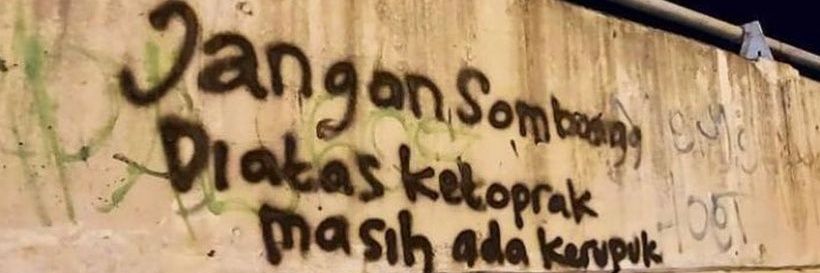 Jangan Sombongg
Diatas ketoprak
masih ada kerupuk